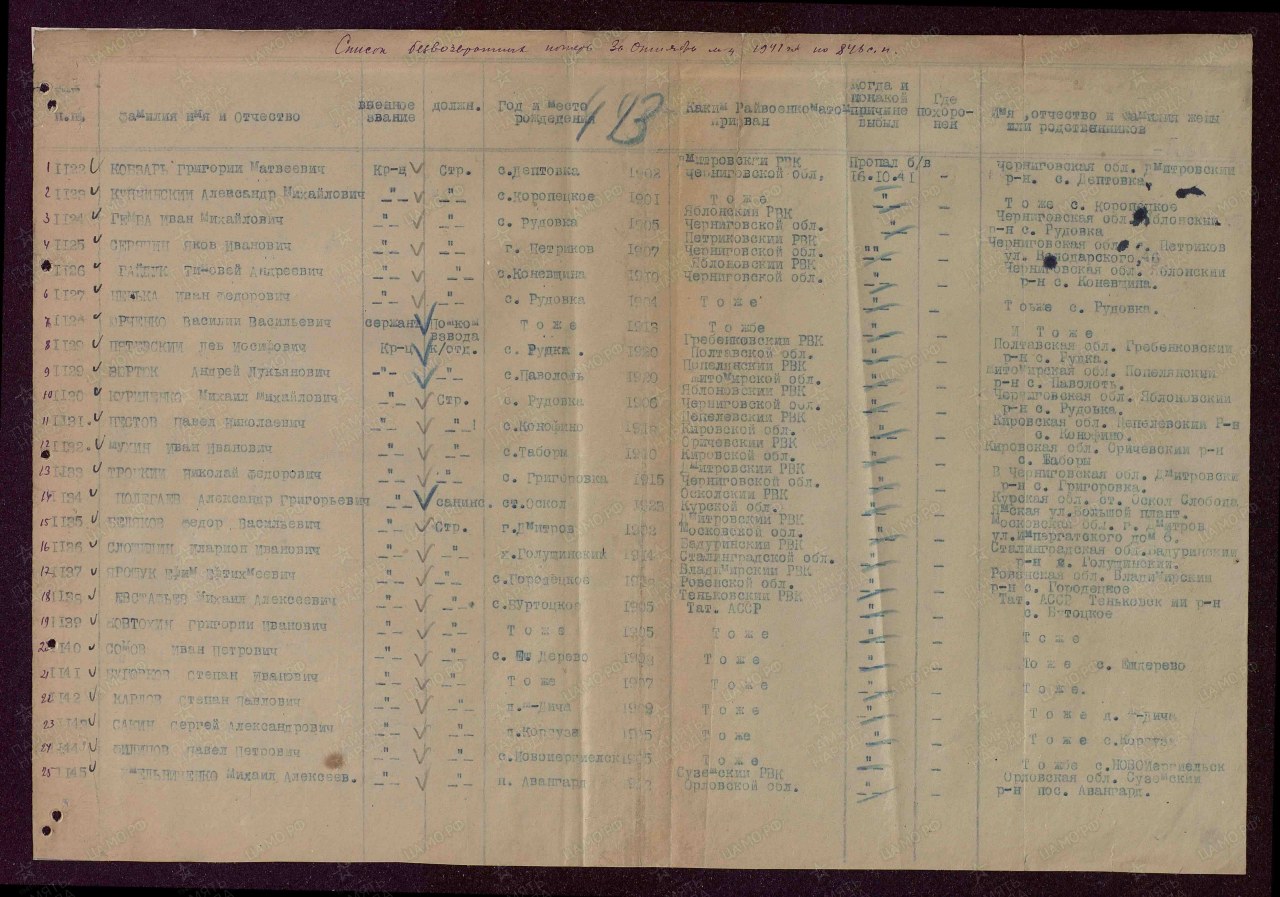 Список безвозвратных потерь за Октябрь м-ц 1941 г. по 846 с.п.
493
п.пп. фамилия имя и Отчество военное звание должн. Год и место рождедения Каким Райвоенкоматом призван Когда и покакой причине выбыл Где похоро-ней Имя, отчество и фамилия жены или родственников
1 1122 КОВЗАРЬ Григории Матвеевич Кр-ц Стр. с.Дептовка 1902 Дмитровскии РВК Черниговской обл, Пропал б/в 16.10.41 – Черниговская обл. Дмитровский р-н. с. Дептовка.
2 1123 Александр Михайлович –"– –"– с.Коропецкое 1901 Т о ж е " – Т о ж е с. Коропецкое
3 1124 Иван Михайлович –"– –"– с. Рудовка 1905 Яблонский РВК Черниговской обл. " – Черниговская обл. Яблонский р-н с. Рудовка
4 1125 Яков Иванович –"– –"– г. Петриков 1907 Петриковский РВК Черниговской обл. " – Черниговская обл. г. Петриков ул. Володарского, 46
1126 ГАЙДУК Тимофей Андреевич –"– –"– с.Коневщина 1910 Яблоновский РВК Черниговской обл. " – Черниговская обл. Яблонский р-н с. Коневщина.
6 1127 Иван Федорович –"– –"– с. Рудовка 1904 Т о ж е " – Т о ж е с. Рудовка.
7 1128 ЮРЧЕНКО Василий Васильевич сержант Помко взвода Т о ж е 1913 Т о ж е " – И Т о ж е
8 1129 ПЕТКЕВСКИЙ Лев Иосифович Кр-ц К/отд. с. Рудка. 1920 Гребенковский РВК Полтавской обл. " – Полтавская обл. Гребенковский р-н с. Рудка.
9 1129 ВОРТОК Андрей Лукьянович –"– –"– с.Паволоть 1920 Попелянский РВК Житомирской обл. " – Житомирская обл. Попелянский р-н с. Паволоть.
10 1130 КУРИЛЕНКО Михаил Михайлович –"– Стр. с. Рудовка 1906 Яблоновский РВК Черниговской обл. " – Черниговская обл. Яблоновский р-н с. Рудовка.
11 1131. ПЕСТОВ Павел Николаевич –"– –"– с.Конофино Пепелевский РВК Кировской обл. " – Кировская обл. Пепелевский Р-н с. Конофино.
12 1132. МУХИН Иван Иванович –"– –"– с.Таборы 1910 Оричевский РВК Кировской обл. " – Кировская обл. Оричевский р-н с. Жаборы
13 1133 ТРОЦКИЙ Николай Федорович –"– –"– с. Григоровка 1915 Дмитровский РВК Черниговской обл. " – В Черниговская обл. Дмитровский р-н с. Григоровка.
14 1134 ПОЛЕГАЕВ Александр Григорьевич –"– санинс. ст.Оскол 1923 Оскольский РВК Курской обл. " – Курская обл. ст. Оскол Слобода Ямская ул.Большой плант.
15 1135 БЕЛОКОВ Федор Васильевич –"– Стр. г.Дмитров 1902 Дмитровский РВК Московской обл. " – Московской обл. г. Дмитров ул.Импаргатского дом 6.
16 1136 Иларион Иванович –"– –"– х.Голушинский 1914 Бадуринский РВК Сталинградской обл. " – Сталинградская обл.Бадуринский р-н х. Голушинский.
17 1137 ЯРОЩУК Ефим Ефтихмеевич –"– –"– с.Городецкое Владимирский РВК Ровенской обл. " – Рованская обл. Владимирский р-н с. Городецкое
18 1138 ЕВСТАФЬЕВ Михаил Алексеевич –"– –"– с.Буртоцкое 1905 Теньковский РВК Тат. АССР " – Тат. АССР Теньковск ий р-н с. Бутоцкое
19 1139 ЗОВТОХИН Григорий Иванович –"– –"– Т о ж е 1905 Т о ж е " – Т о ж е
1140 СОМОВ Иван Петрович –"– –"– с. Дерево Т о ж е " – То ж е с. Ендерево
21 1141 Степан Иванович –"– –"– Т о ж е 1907 Т о ж е " – Т о ж е.
22 1142 КАРПОВ Степан Павлович –"– –"– 1909 Т о ж е " – Т о ж е
23 1143 САКИН Сергей Александрович –"– –"– 1905 Т о ж е " – Т о ж е
24 1144 Павел Петрович –"– –"– Т о ж е " – Т о ж е
25 1145 Михаил Алексеев. –"– –"– п. Авангард Суземский РВК Орловской обл. " – Орловская обл. Суземский р-н пос. Авангард.